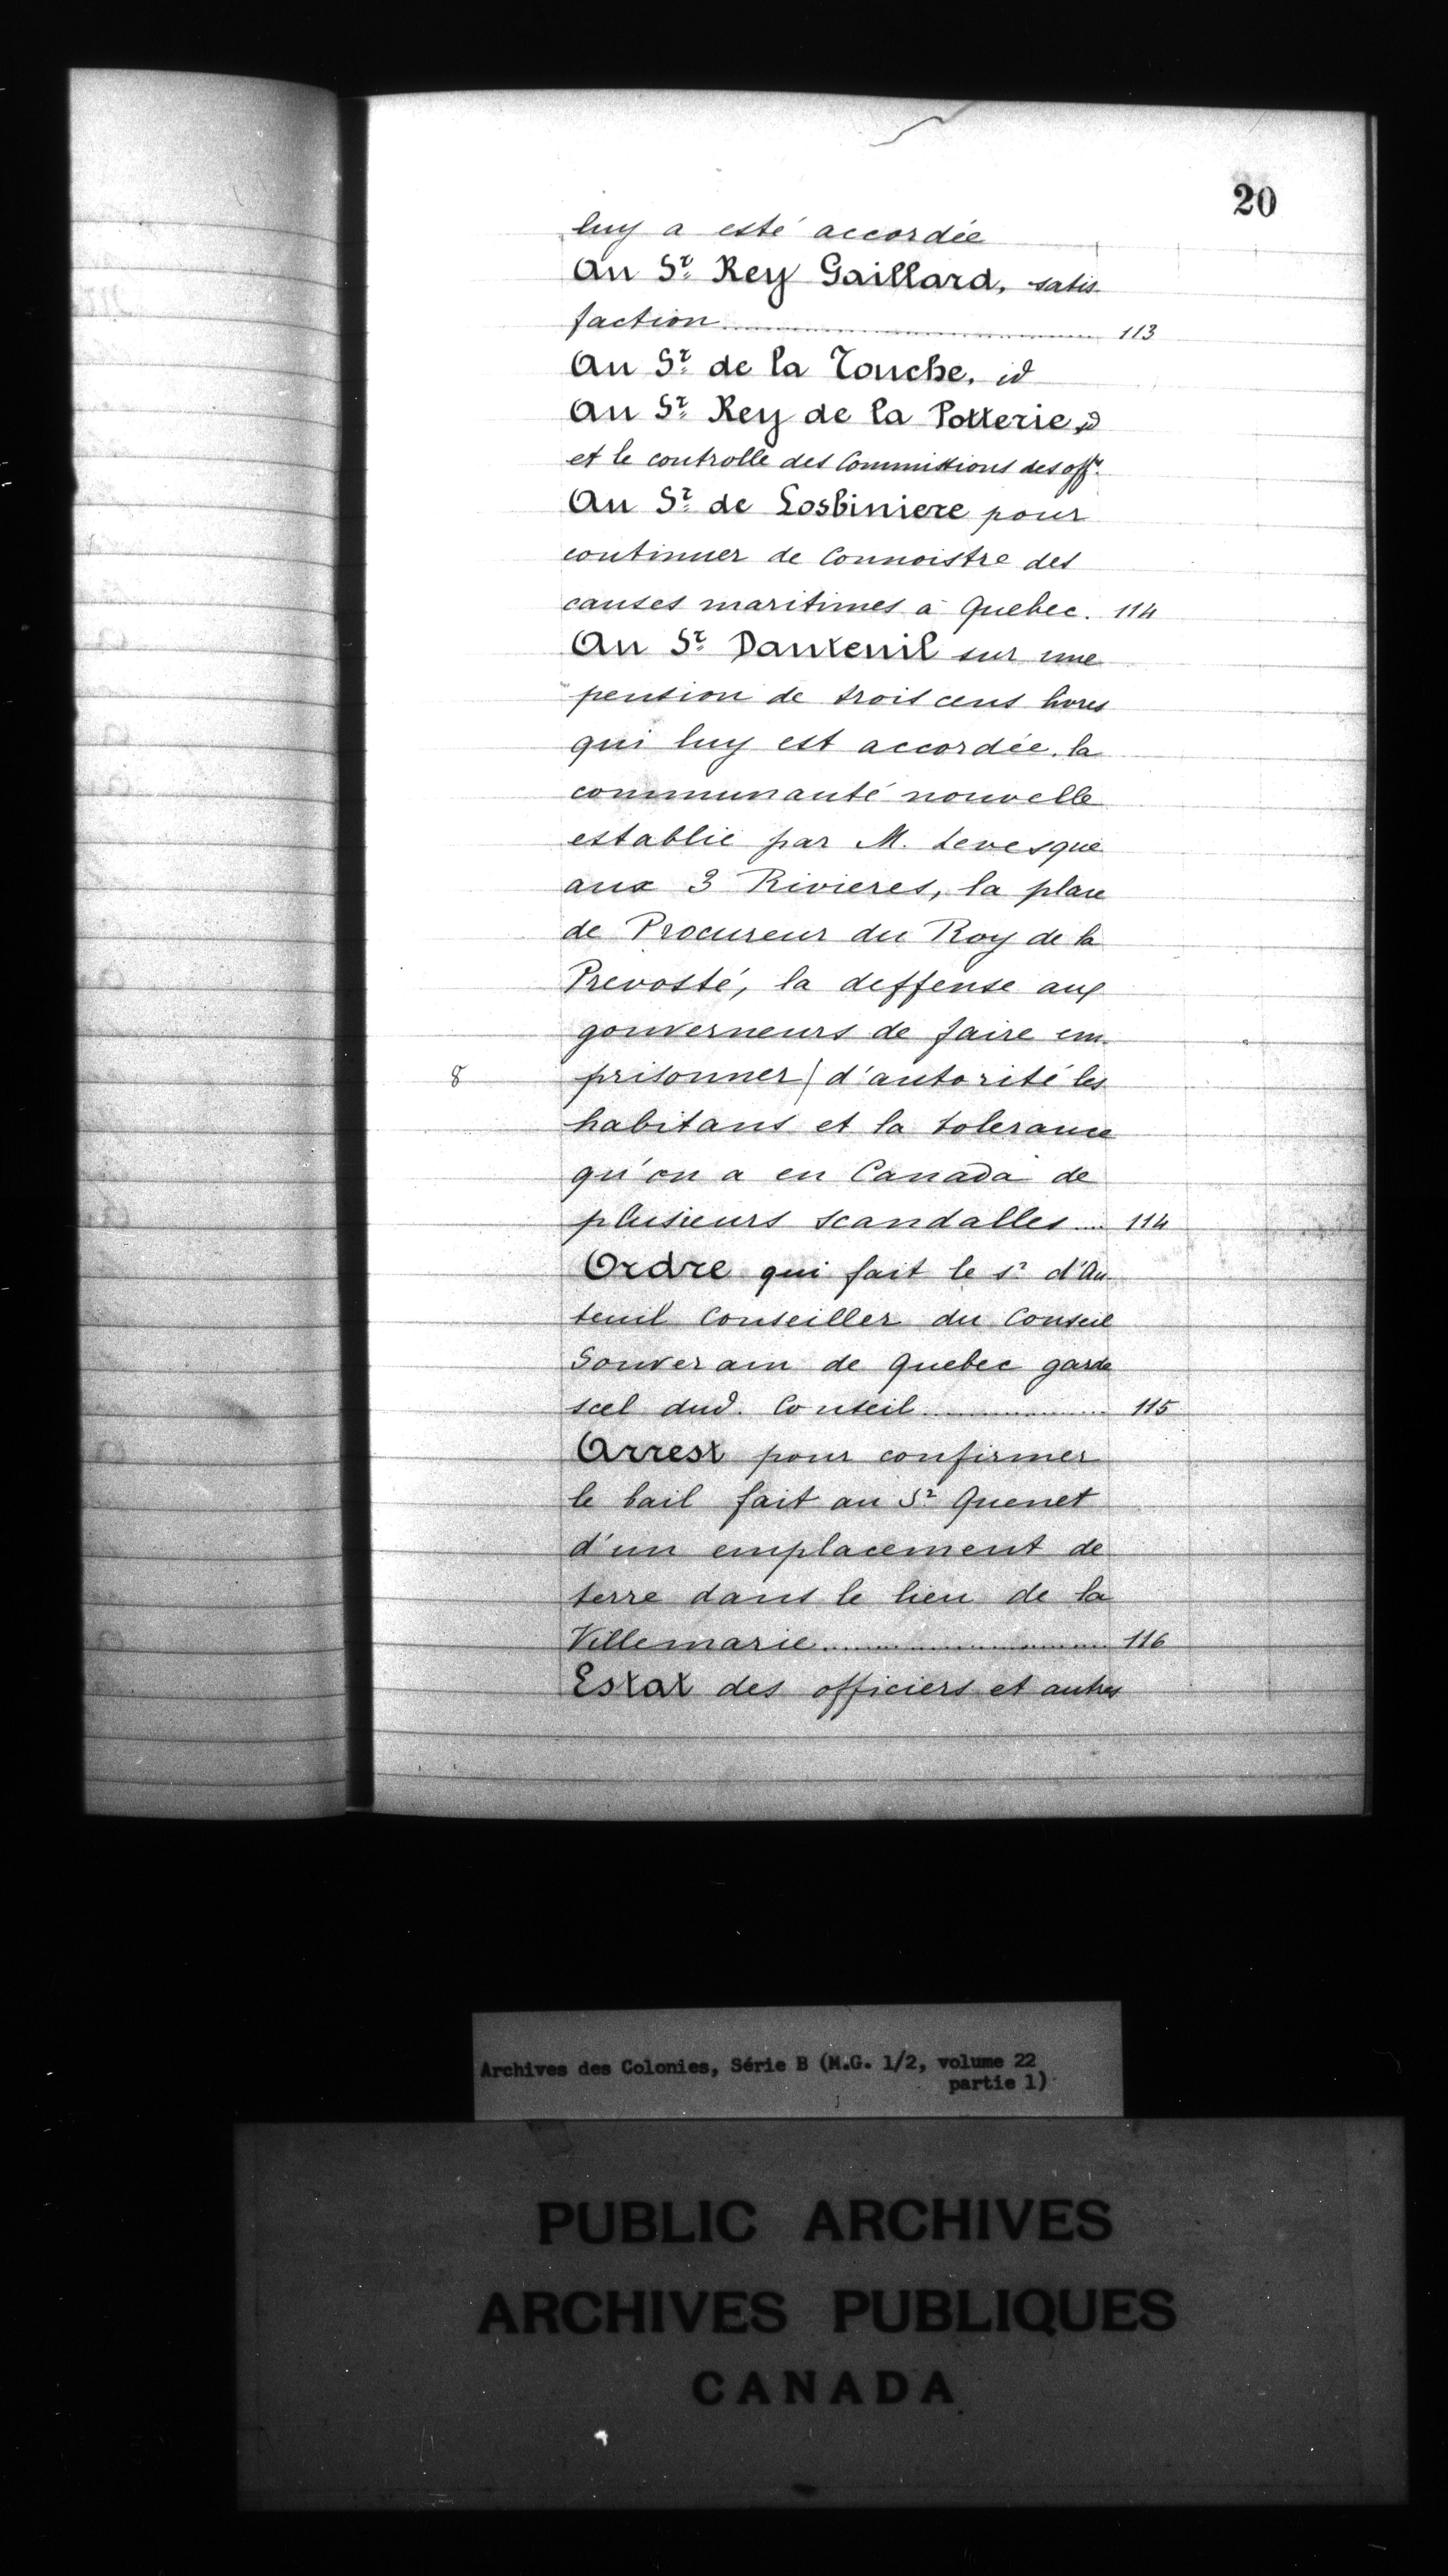 20
luy a esté accordée
Au Sr Rey Gaillard, satis-
faction ........ 113
Au Sr de la Touche, id
Au Sr Rey de la Potterie, id
et le controlle des Commissions des offrs.
Au Sr de Losbiniere pour
continuer de Connoistre des
causes maritimes à Quebec. 114
Au Sr Dauteuil sur une
pension de trois cens livres
qui luy est accordée, la
communauté nouvelle
establie par M. Levesque
aux 3 Rivieres, la place
de Procureur du Roy de la
Prevosté, la deffense aux
gouverneurs de faire em-
8 prisonner / d'autorité les
habitans et la tolerance
qu'on a en Canada de
plusieurs scandalles .... 114
Ordre qui fait le sr d'Au-
teuil Conseiller du Conseil
Souverain de Quebec garde
scel dud. Conseil ........ 115
Arrest pour confirmer
le bail fait au Sr Quenet
d'un emplacement de
terre dans le lieu de la
Villemarie ........ 116
Estat des officiers et autres
Archives des Colonies, Série B (M.G. 1/2, volume 22
partie 1)
PUBLIC ARCHIVES
ARCHIVES PUBLIQUES
CANADA